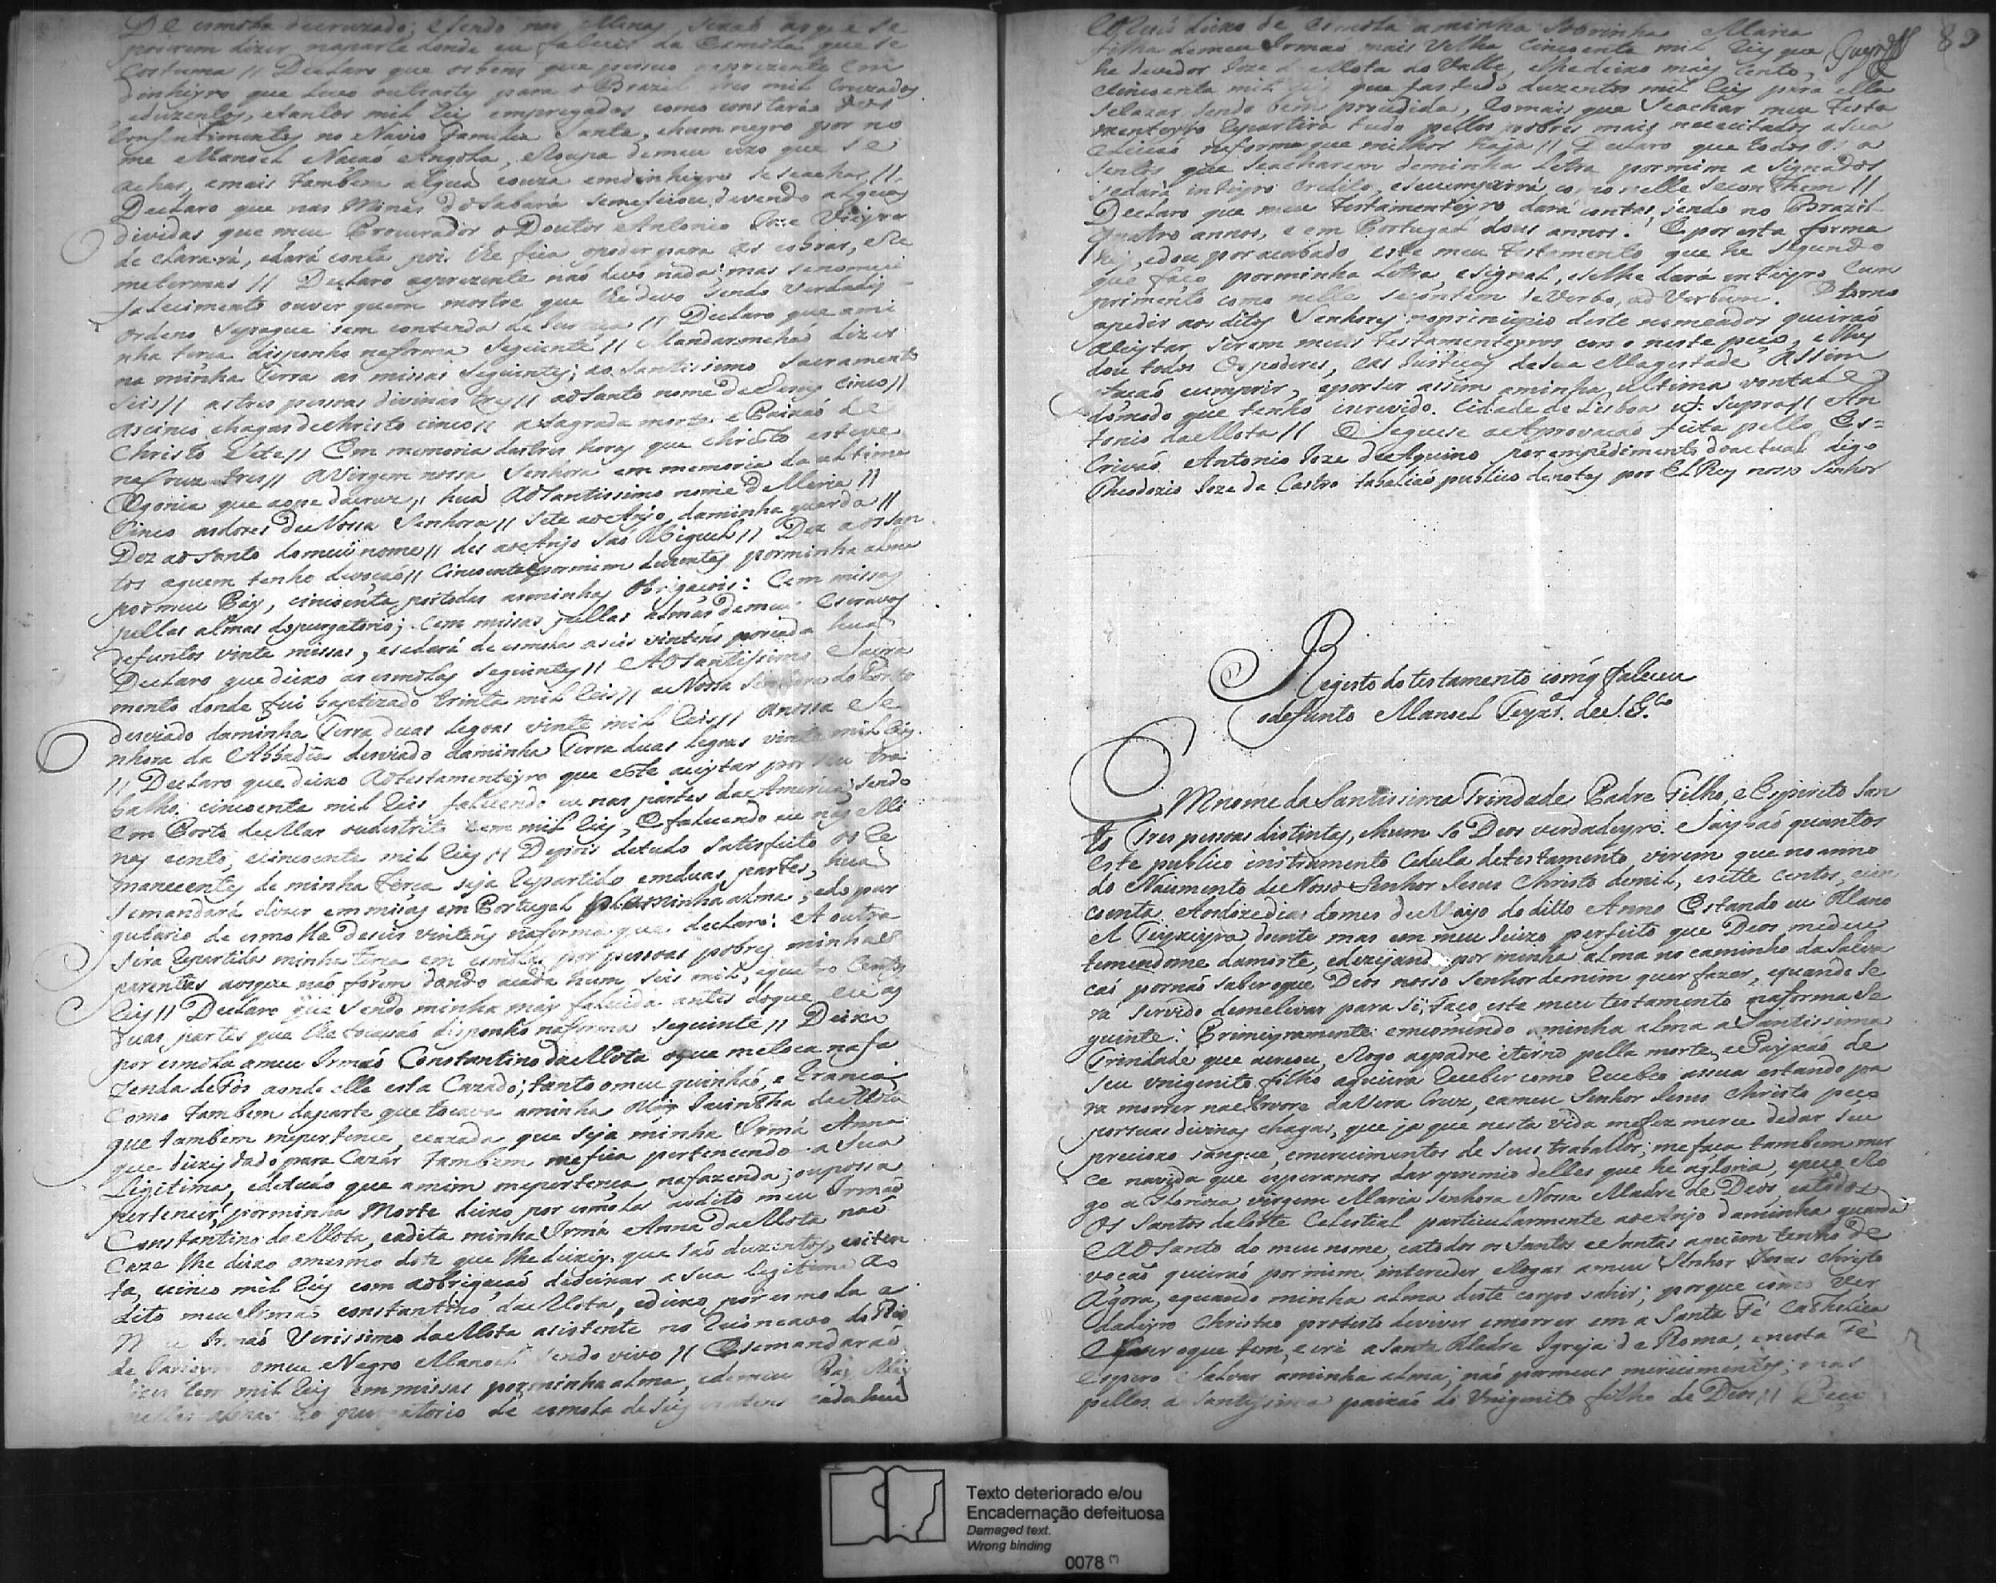 De esmola decruzado; esendo nas Minas serão as que se
poderem dizer naparte donde eu falecer da Esmola que se
Costuma // Declaro que osbens que possuo aoprezente em
dinheyro que Levo outrasty para o Brazil tres mil Cruzados
eduzentos, etantos mil Reis empregados como constarão dos
Conhecimentos no Navio Familia Santa, ehum negro por no
me Manoel Nacaõ Angola, eRoupa demeu uzo que se
achar, emais tambem algua couza emdinheyro seseachar //
Declaro que nas Minas doSabará semeficou devendo alguas
dividas que meu Procurador oDoutor Antonio Joze Vieyra
declarará, edará conta pois lhe fica opoder para as cobrar, eRe
metermas // Declaro aoprezente não devo nada; mas senomeu
falecimento ouver quem mostre que lhe devo sendo verdade
ordeno sepague sem contenda de Justiça // Declaro que ami
nha terça disponho naforma seguinte // Mandarmehaõ dizer
na minha Terra as missas seguintes; ao Santissimo Sacramento
Seis // astres pessoas divinas tres // aoSanto nome de Jesus cinco //
Ascinco chagas de Christo cinco // aSagrada morte e Paixaõ de
Christo Sete // Em memoria dastres horas que Christo esteve
naCruz tres // aVirgem nossa Senhora em memoria da ultima
Agonia que aope dacruz, hua AoSantissimo nome de Maria //
Cinco asdores de Nossa Senhora // Sete aoAnjo daminha guarda //
Dez ao Santo domeu nome // des aoAnjo Saõ Miguel // Dez aos San
tos aquem tenho devoçaõ // Cincoenta pormim duzentas porminha alma
pormeu Pay, cincoenta portodas asminhas obrigacois: Cem missas
pellas almas dopurgatorio; Cem missas pellas almas demeus Escravos
defuntos vinte missas, esedará de esmola aseis vintens porcada hua
Declaro que deixo as esmolas seguintes // AoSantissimo Sacra
mento donde fui baptizado trinta mil Reis // a Nossa Senhora do Porto
desviado daminha Terra duas legoas vinte mil Reis // anossa Se
nhora da Abbadia desviado daminha Terra duas legoas vinte mil Reis
// Declaro que deixo Aotestamenteyro que este aceytar por seu tra
balho cincoenta mil Reis falecendo eu nas partes da America; sendo
Em Porto de Mar oudestrito Cem mil Reis, Efalecendo eu nas Mi
nas cento, ecincoente mil Reis // Depois detudo satisfeito os Re
manecentes de minha Terça seja Repartido emduas partes, hua
semandará dizer emmissas em Portugal plaminha alma, edo pur
gatorio de esmolla deseis vintens naforma que declaro: A outra
sera Repartida minha terça em esmolas por pessoas pobres minhas
parentas aosque não forem dando acada hum, seis mil, equatro Centos
Reis // Declaro que sendo minha may falecida antes doque eu as
duas partes que lhe tocavaõ disponho naforma seguinte // Deixo
por esmola ameu Irmaõ Constantino daMota oque metoca nafa
zenda deFos aonde elle esta Cazado; tanto omeu quinhaõ, e herança
Como tambem daparte que tocava aminha May Jacintha daMota
que tambem mepertence, ecazada que seja minha Irmã Anna
que deixey dado para Cazar tambem mefica pertencendo a Sua
Legitima, edetudo que amim mepertença nafazenda; oupossa
pertencer, porminha Morte deixo por esmola aodito meu Irmaõ
Constantino da Mota, eadita minha Irmã Anna da Mota naõ
Caze lhe deixo omesmo dote que lhe deixey que saõ duzentos, eoiten
ta, ecinco mil Reis com aobrigaçaõ dedeixar a sua legitima ao
dito meu Irmaõ constantino da Mota, edeixo por esmola a
Meu Irmaõ Verissimo daMota asistente no Reconcavo do Rio
de Janeyro omeu Negro Manoel sendo vivo // Esemandaraõ
dizer Cem mil Reis emmissas porminha alma, edemeu Pay May
pellas almas do purgatorio de esmola deseis vintens cada hua
89
Eomais deixo de Esmola aminha Sobrinha Maria
filha demeu Irmaõ mais Velho Cincoenta mil Reis que
he devedor Joze da Mota do Valle, elhedeixo mais Cento,
eCincoenta mil Reis que fastudo duzentos mil Reis para ella
seCazar sendo bem procedida, Eomais que seachar meu testa
menteyro Repartira tudo pellos pobres mais necessitados asua
eleicaõ naforma que milhor haja // Declaro que todos os a
sentos que seacharem deminha Letra pormim asignados
sedará inteyro credito, esecumprirá como nelle seconthem //
Declaro que meu testamenteyro dará contas sendo no Brazil
quatro annos, e em Portugal dous annos. E por esta forma
hey, edou poracabado este meu testamento que he segundo
que faço porminha Letra, esignal, eselhe dará inteyro Cum
primento como nelle secontem deVerbo, ad Verbum. E torno
apedir aosditos Senhores noprincipio deste nomeados queiraõ
aceytar serem meus testamenteyros como neste peço, elhes
dou todos Os poderes, eas Justiças desua Magestade Assim
façaõ cumprir, eporser assim aminha ultima vontade
domodo que tenho escrevido. Cidade de Lisboa ut Supra // An
tonio daMota // E seguese aAprovacaõ feita pello Es=
Crivaõ Antonio Joze de Aquino por empedimento doactual digo
Theodozio Joze da Castro tabaliaõ publico denotas por ElRey nosso Senhor
Registo do testamento com q faleceu
odefunto Manoel Teyxrª. de S. Gˡᵒ
EMnome da Santissima Trindade Padre Filho, e Espirito San
to tres pessoas distintas, ehum só Deos verdadeyro. Saybaõ quantos
este publico instrumento Cedula detestamento virem que no anno
do Nascimento de Nosso Senhor Jesus Christo demil, esette centos, ecin
coenta Aosdozedias domes de Mayo do ditto Anno Estando eu Mano
el Teyxeyra doente mas em meu Juizo perfeito que Deos medeu
temendome damorte, edezejando por minha alma no caminho da salva
caõ pornaõ saber oque Deos nosso Senhor demim quer fazer, equando se
rá servido demelevar para si, faço este meu testamento naforma se
guinte: Primeyramente emcomendo aminha alma aSantissima
Trindade que acriou, eRogo aopadre eterno pella morte, ePayxaõ de
seu Unigenito filho aqueira Receber como Recebeo asua estando pa
ra morrer naArvore daVera Cruz, eameu Senhor Jesus Christo peço
porsuas divinas chagas, que ja que nesta vida mefez merce dedar seu
precioso sangue, emerecimentos de seus trabalhos; mefaca tambem mer
ce navida que esperamos dar opremio delles que he agloria, epeço eRo
go a Glorioza virgem Maria Senhora Nossa Madre de Deos eatodos
Os Santos daCorte Celestial particularmente aoAnjo daminha guarda
eAoSanto do meu nome, eatodos os Santos eSantas aquem tenho de
voçaõ queiraõ pormim interceder eRogar ameu Senhor Jesus Christo
Agora, equando minha alma deste corpo sahir; porque como Ver
dadeyro Christaõ protesto deviver emorrer em a Santa Fé Catholica
eCrer oque tem, e crê a Santa Madre Igreja de Roma, enesta Fé
espero Salvar aminha alma, naõ pormeus merecimentos; mas
pellos da Santissima paixaõ do Unigenito filho de Deos // Peço
Texto deteriorado e/ou
Encadernação defeituosa
Damaged text.
Wrong binding
0078